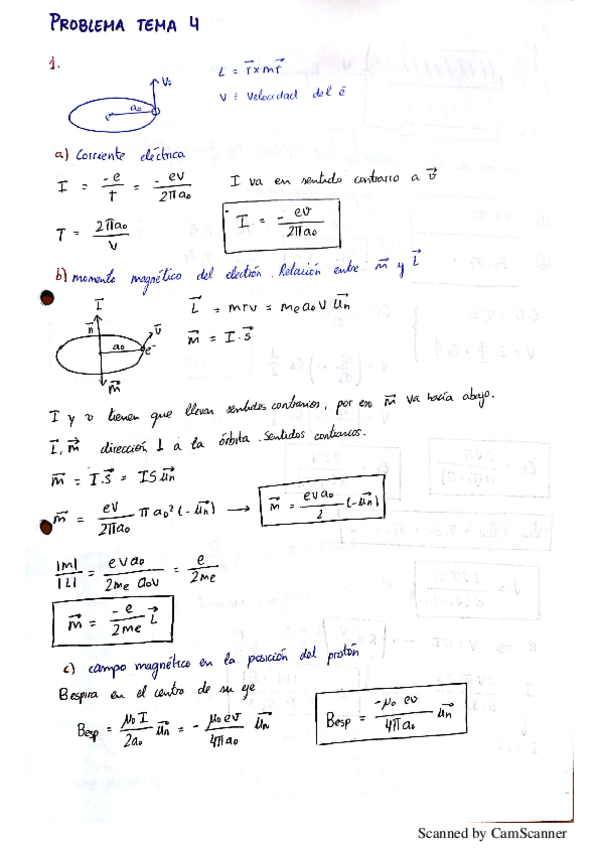 PROBLEMA TEMA 4
1.
V₀
a₀
L = r⃗ x m r⃗
V = Velocidad del ē
a) Corriente eléctrica
I = -e/T = - ev/2πa₀   I va en sentido contrario a v⃗
T = 2πa₀/V   I = - ev/2πa₀
b) momento magnético del electrón. Relación entre m⃗ y L⃗
I⃗
n⃗
v⃗
a₀
e⁻
m⃗
L⃗ = mrv = me a₀ V u⃗n
m⃗ = I · S⃗
I y v tienen que llevar sentidos contrarios, por eso m⃗ va hacia abajo.
L⃗, m⃗ dirección ⊥ a la órbita. Sentidos contrarios.
m⃗ = I · S⃗ = I S u⃗n
m⃗ = ev/2πa₀ π a₀² (-u⃗n) → m⃗ = eva₀/2 (-u⃗n)
|m|/|L| = eva₀/2me a₀v = e/2me
m⃗ = -e/2me L⃗
c) campo magnético en la posición del protón
Bespira en el centro de su eje
Besp = μ₀ I/2a₀ u⃗n = - μ₀ ev/4πa₀ u⃗n   Besp = -μ₀ ev/4πa₀ u⃗n
Scanned by CamScanner